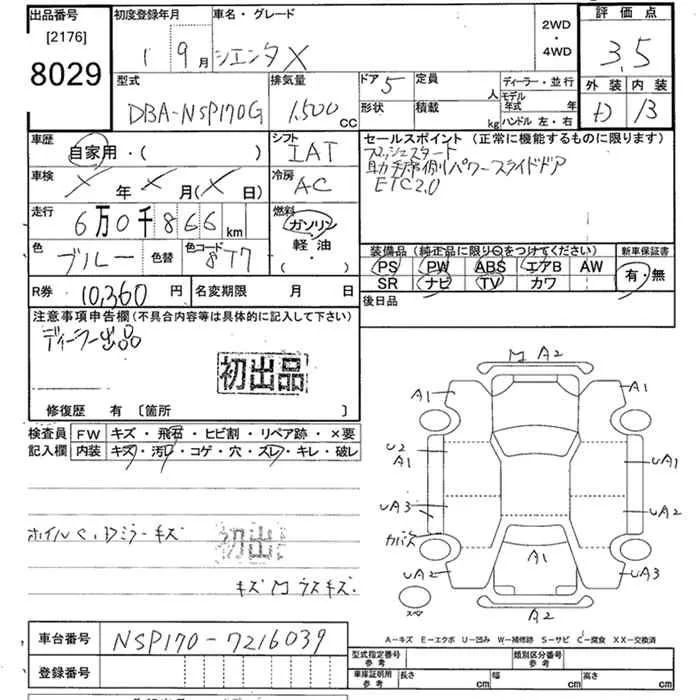 出品番号 初度登録年月 車名・グレード 2WD・4WD 評価点
[2176]
8029 1 9月 シエンタ X 3.5
型式 排気量 ドア 5 定員 人 ディーラー・並行 外装 内装
DBA-NSP170G 1,500CC 形状 積載 kg モデル年式 年 ハンドル 左・右 D B
車歴 自家用・( ) シフト IAT セールスポイント (正常に機能するものに限ります)
プッシュスタート
助手席側パワースライドドア
ETC2.0
車検 X年X月(X日) 冷房 AC
走行 6万0千866km 燃料 ガソリン・軽油・( )
色 ブルー 色替 色コード 8T7
装備品(純正品に限り○をつけてください) 新車保証書
PS PW ABS エアB AW 有・無
SR ナビ TV カワ
R券 10,360円 名変期限 月 日 後日品
注意事項申告欄(不具合内容等は具体的に記入して下さい)
ディーラー出品
初出品
修復歴 有 〔箇所 〕
検査員記入欄 FW キズ・飛石・ヒビ割・リペア跡・×要
内装 キズ・汚レ・コゲ・穴・スレ・キレ・破レ
ホイル
ミラーキズ
初出
キズ
M A2
A1 A1
U2
A1 UA1
UA3 UA2
A1
UA2 UA3
スペア
A2
A-キズ E-エクボ U-凹み W-補修跡 S-サビ C-腐食 XX-交換済
車台番号 NSP170-7216039
登録番号
型式指定番号 参考 類別区分番号 参考
車庫証明用 参考 長さ cm 幅 cm 高さ cm